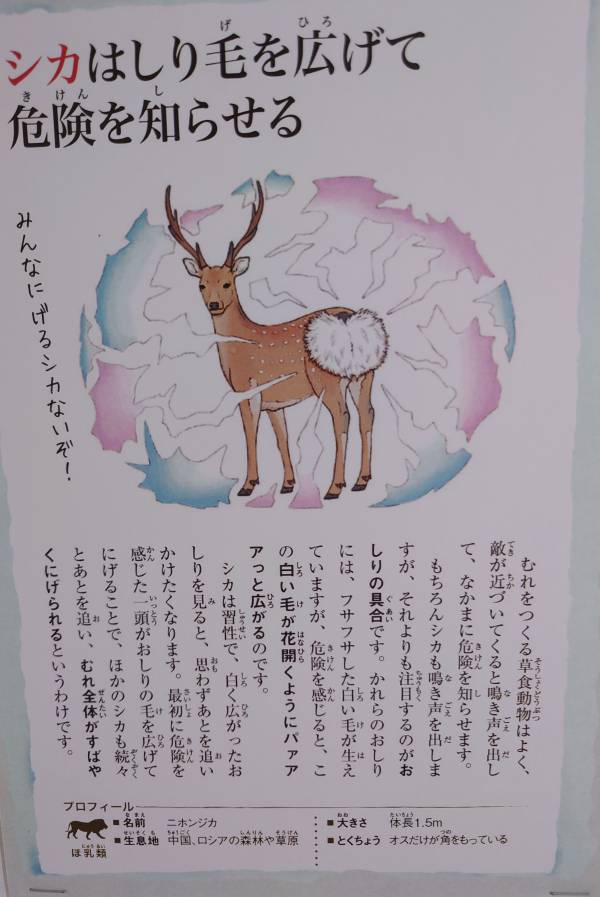 シカはしり毛を広げて
危険を知らせる
みんなにげるシカないぞ!
むれをつくる草食動物はよく、
敵が近づいてくると鳴き声を出し
て、なかまに危険を知らせます。
もちろんシカも鳴き声を出しま
すが、それよりも注目するのがお
しりの具合です。かれらのおしり
には、フサフサした白い毛が生え
ていますが、危険を感じると、こ
の白い毛が花開くようにパァァ
アッと広がるのです。
シカは習性で、白く広がったお
しりを見ると、思わずあとを追い
かけたくなります。最初に危険を
感じた一頭がおしりの毛を広げて
にげることで、ほかのシカも続々
とあとを追い、むれ全体がすばや
くにげられるというわけです。
プロフィール
ほ乳類
■名前 ニホンジカ
■生息地 中国、ロシアの森林や草原
■大きさ 体長1.5m
■とくちょう オスだけが角をもっている